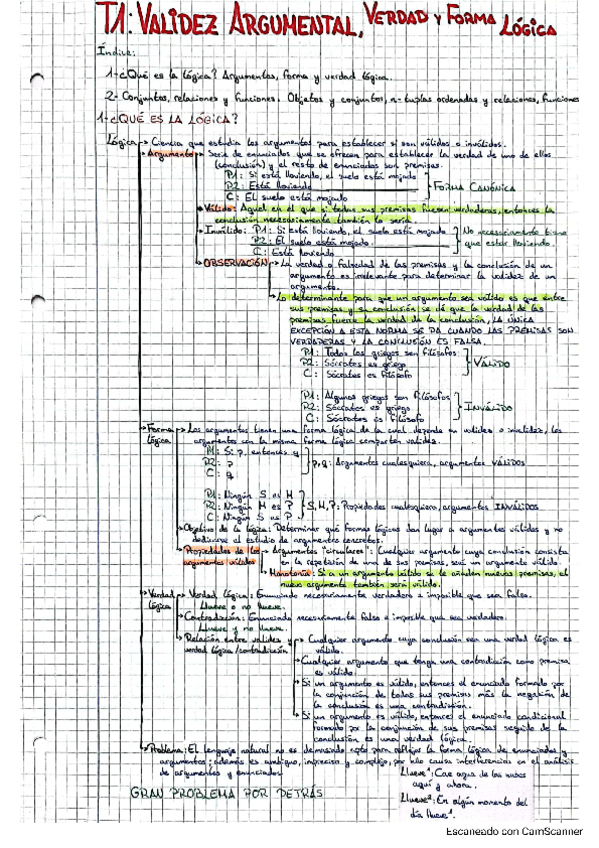 T.1: VALIDEZ ARGUMENTAL, VERDAD y FORMA LÓGICA
Índice:
1-¿Qué es la lógica? Argumentos, forma y verdad lógica.
2- Conjuntos, relaciones y funciones. Objetos y conjuntos, n-tuplas ordenadas y relaciones, funciones
1-¿QUÉ ES LA LÓGICA?
Lógica → Ciencia que estudia los argumentos para establecer si son válidos o inválidos.
Argumento → Serie de enunciados que se ofrecen para establecer la verdad de uno de ellos
(conclusión) y el resto de enunciados son premisas.
P1: Si está lloviendo, el suelo está mojado
P2: Está lloviendo
C: El suelo está mojado
FORMA CANÓNICA
Válido: Aquel en el que si todas sus premisas fuesen verdaderas, entonces la
conclusión necesariamente también lo sería.
Inválido: P1: Si está lloviendo, el suelo está mojado
P2: El suelo está mojado
C: Está lloviendo
No necesariamente tiene
que estar lloviendo.
OBSERVACIÓN → La verdad o falsedad de las premisas y la conclusión de un
argumento es irrelevante para determinar la validez de un
argumento.
Lo determinante para que un argumento sea válido es que entre
sus premisas y su conclusión se dé que la verdad de las
premisas fuerce la verdad de la conclusión, LA ÚNICA
EXCEPCIÓN A ESTA NORMA SE DA CUANDO LAS PREMISAS SON
VERDADERAS y LA CONCLUSIÓN ES FALSA.
P1: Todos los griegos son filósofos
P2: Sócrates es griego
C: Sócrates es filósofo
VÁLIDO
P1: Algunos griegos son filósofos
P2: Sócrates es griego
C: Sócrates es filósofo
INVÁLIDO
Forma lógica → Los argumentos tienen una forma lógica de la cual depende su validez o invalidez, los
argumentos con la misma forma lógica comparten validez.
P1: Si p, entonces q
P2: p
C: q
p,q: Argumentos cualesquiera, argumentos VÁLIDOS
P1: Ningún S es M
P2: Ningún M es P
C: Ningún S es P
S, M, P: Propiedades cualesquiera, argumentos INVÁLIDOS
Objetivo de la lógica: Determinar qué formas lógicas dan lugar a argumentos válidos y no
dedicarse al estudio de argumentos concretos.
Propiedades de los argumentos válidos → Argumentos "circulares": Cualquier argumento cuya conclusión consista
en la repetición de una de sus premisas, será un argumento válido.
Monotonía: Si a un argumento válido se le añaden nuevas premisas, el
nuevo argumento también será válido.
Verdad lógica → Verdad lógica: Enunciado necesariamente verdadero e imposible que sea falso.
Llueve o no llueve.
Contradicción: Enunciado necesariamente falso e imposible que sea verdadero.
Llueve y no llueve.
Relación entre validez y verdad lógica/contradicción → Cualquier argumento cuya conclusión sea una verdad lógica es
válido.
Cualquier argumento que tenga una contradicción como premisa
es válido
Si un argumento es válido, entonces el enunciado formado por
la conjunción de todas sus premisas más la negación de
la conclusión es una contradicción.
Si un argumento es válido, entonces el enunciado condicional
formado por la conjunción de sus premisas seguido de la
conclusión es una verdad lógica.
Problema: El lenguaje natural no es demasiado apto para reflejar la forma lógica de enunciados y
argumentos; además es ambiguo, impreciso y complejo, por ello causa interferencias en el análisis
de argumentos y enunciados.
Llueve¹: Cae agua de las nubes
aquí y ahora.
Llueve²: En algún momento del
día llueve¹.
GRAN PROBLEMA POR DETRÁS
Escaneado con CamScanner